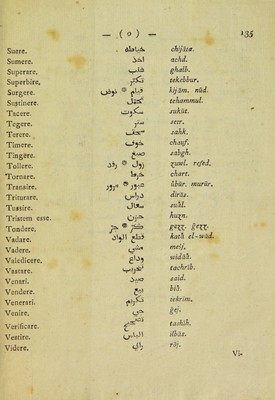 — ( 0 ) — 135
Suere. خياطة chijáta.
Sumere. اخذ achd.
Superare. غلب ghalb.
Superbire. تكبّر tekebbur.
Surgere. قيام * نوض kijám. núd.
Sustinere. تحمّل tehammul.
Tacere. سكوت sukút.
Tegere. ستر setr.
Terere. سحق sahk.
Timere. خوف chauf.
Tingere. صبغ sabgh.
Tollere. زول * رفد zuwl. refed.
Tornare. خرط chart.
Transire. عبور * مرور úbúr. murúr.
Triturare. دراس dirás.
Tussire. سعال suâl.
Tristem esse. حزن huzn.
Tondere. جزّ gezz.
Vadare. قطع الواد kath el-wád.
Vadere. مشي meij.
Valedicere. وداع widáh.
Vastare. تخريب tachrib.
Venari. صيد said.
Vendere. بيع bih.
Venerari. تكريم tekrim.
Venire. جي
Verificare. تصحيح tashih.
Vestire. الباس ilbás.
Videre. راي ráj.
Vi-